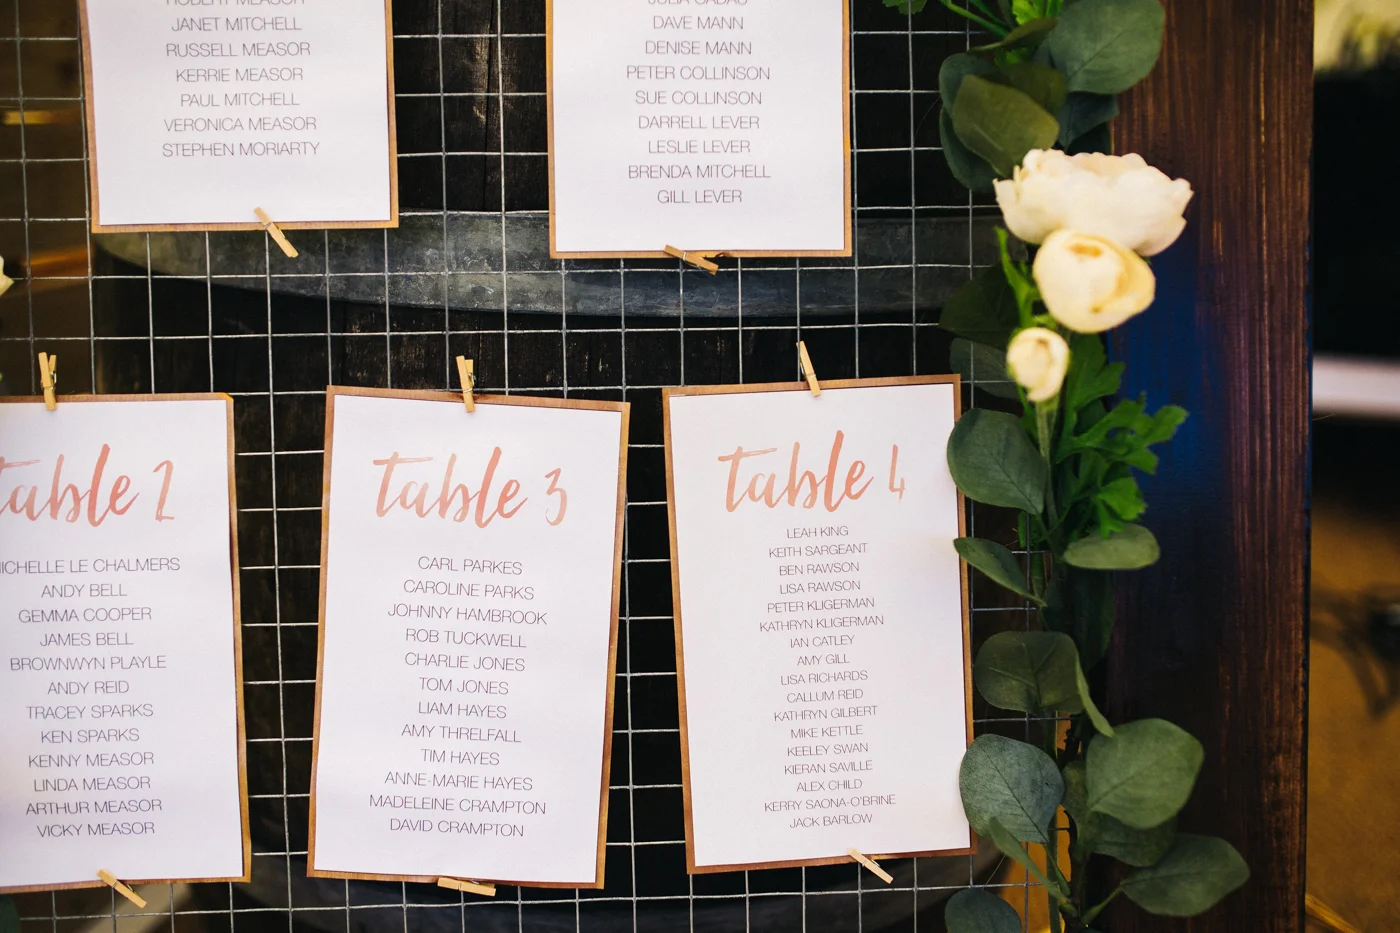 ROBERT MEASOR
JANET MITCHELL
RUSSELL MEASOR
KERRIE MEASOR
PAUL MITCHELL
VERONICA MEASOR
STEPHEN MORIARTY
DAVE MANN
DENISE MANN
PETER COLLINSON
SUE COLLINSON
DARRELL LEVER
LESLIE LEVER
BRENDA MITCHELL
GILL LEVER
table 2
MICHELLE LE CHALMERS
ANDY BELL
GEMMA COOPER
JAMES BELL
BROWNWYN PLAYLE
ANDY REID
TRACEY SPARKS
KEN SPARKS
KENNY MEASOR
LINDA MEASOR
ARTHUR MEASOR
VICKY MEASOR
table 3
CARL PARKES
CAROLINE PARKS
JOHNNY HAMBROOK
ROB TUCKWELL
CHARLIE JONES
TOM JONES
LIAM HAYES
AMY THRELFALL
TIM HAYES
ANNE-MARIE HAYES
MADELEINE CRAMPTON
DAVID CRAMPTON
table 4
LEAH KING
KEITH SARGEANT
BEN RAWSON
LISA RAWSON
PETER KLIGERMAN
KATHRYN KLIGERMAN
IAN CATLEY
AMY GILL
LISA RICHARDS
CALLUM REID
KATHRYN GILBERT
MIKE KETTLE
KEELEY SWAN
KIERAN SAVILLE
ALEX CHILD
KERRY SAONA-O'BRINE
JACK BARLOW